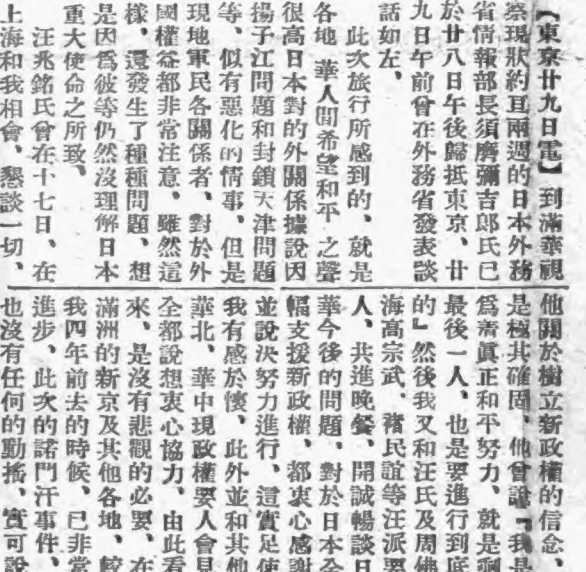 【東京廿九日電】到滿華視
察現狀約亘兩週的日本外務
省情報部長須磨彌吉郎氏已
於廿八日午後歸抵東京、廿
九日午前曾在外務省發表談
話如左、
此次旅行所感到的、就是
各地 華人間希望和平 之聲
很高日本對的外關係據說因
揚子江問題和封鎖天津問題
等、似有惡化的情事、但是
現地軍民各關係者、對於外
國權益都非常注意、雖然這
樣、還發生了種種問題、想
是因爲彼等仍然沒理解日本
重大使命之所致、
汪兆銘氏曾在十七日、在
上海和我相會、懇談一切、
他關於樹立新政權的信念、
是極其確固、他曾說『我是
爲着眞正和平努力、就是剩
最後一人、也是要進行到底
的』然後我又和汪氏及周佛
海高宗武、褚民誼等汪派要
人、共進晚餐、開誠暢談日
華今後的問題、對於日本全
幅支援新政權、都衷心感謝
並說決努力進行、這實足使
我有感於懷、此外並和其他
華北、華中現政權要人會見
全都說想衷心協力、由此看
來、是沒有悲觀的必要、在
滿洲的新京及其他各地、較
我四年前去的時候、已非常
進步、此次的諾門汗事件、
也沒有任何的動搖、實可說